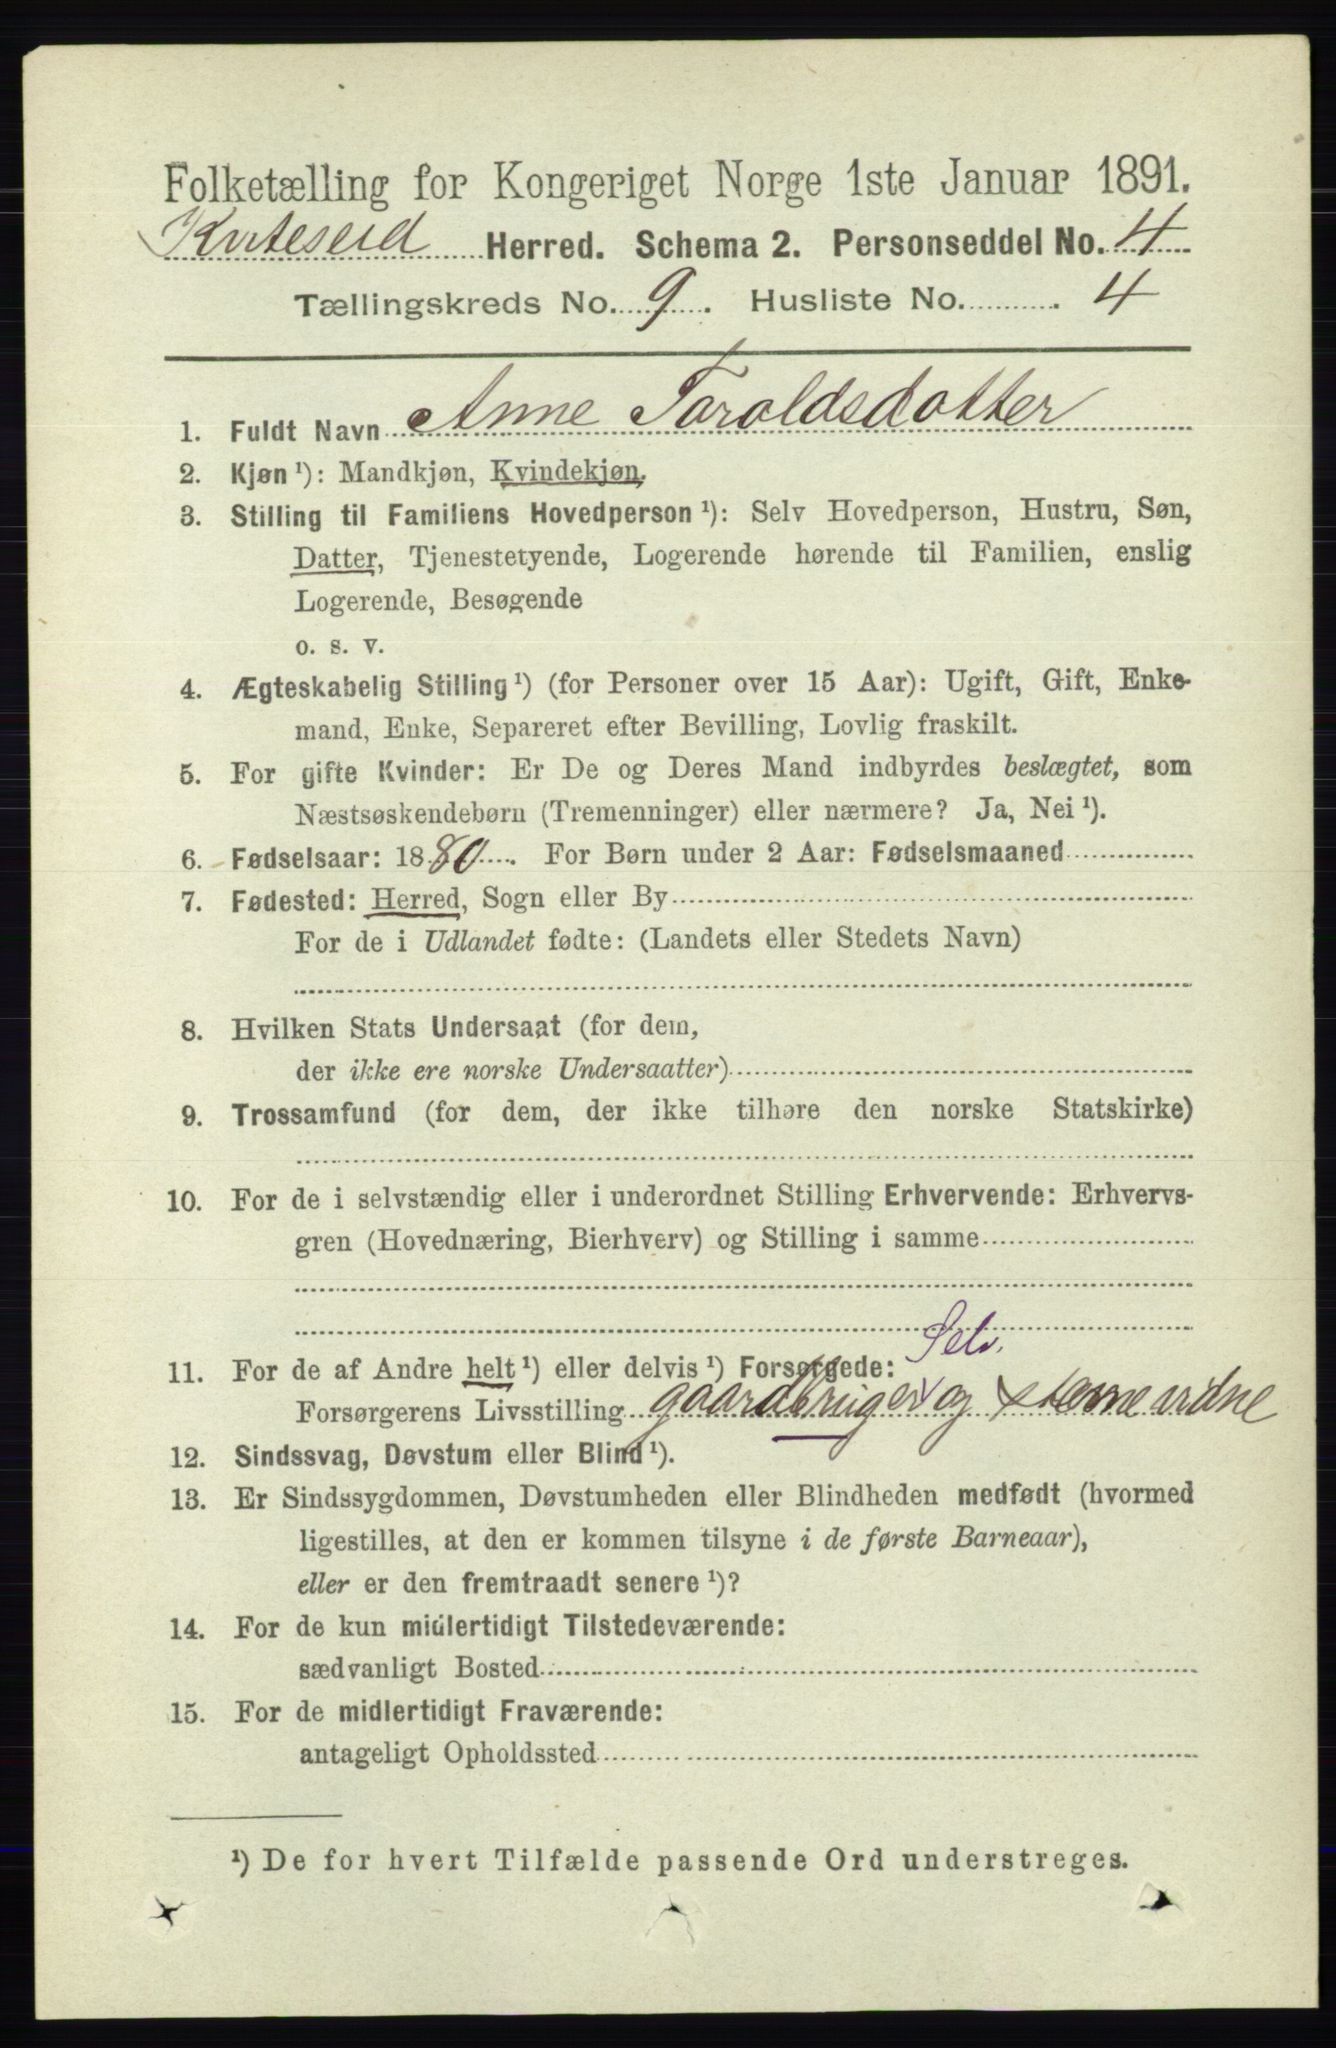 Folketælling for Kongeriget Norge 1ste Januar 1891.
Kviteseid Herred. Schema 2. Personseddel No. 4
Tællingskreds No. 9. Husliste No. 4
1. Fuldt Navn Anne Taraldsdatter
2. Kjøn ¹): Mandkjøn, Kvindekjøn.
3. Stilling til Familiens Hovedperson ¹): Selv Hovedperson, Hustru, Søn,
Datter, Tjenestetyende, Logerende hørende til Familien, enslig
Logerende, Besøgende
o. s. v.
4. Ægteskabelig Stilling ¹) (for Personer over 15 Aar): Ugift, Gift, Enke-
mand, Enke, Separeret efter Bevilling, Lovlig fraskilt.
5. For gifte Kvinder: Er De og Deres Mand indbyrdes beslægtet, som
Næstsøskendebørn (Tremenninger) eller nærmere? Ja, Nei ¹).
6. Fødselsaar: 1880. For Børn under 2 Aar: Fødselsmaaned
7. Fødested: Herred, Sogn eller By
For de i Udlandet fødte: (Landets eller Stedets Navn)
8. Hvilken Stats Undersaat (for dem,
der ikke ere norske Undersaatter)
9. Trossamfund (for dem, der ikke tilhøre den norske Statskirke)
10. For de i selvstændig eller i underordnet Stilling Erhvervende: Erhvervs-
gren (Hovednæring, Bierhverv) og Stilling i samme
Selv.
11. For de af Andre helt ¹) eller delvis ¹) Forsørgede:
Forsørgerens Livsstilling gaardbruger og stevnevidne
12. Sindssvag, Døvstum eller Blind ¹).
13. Er Sindssygdommen, Døvstumheden eller Blindheden medfødt (hvormed
ligestilles, at den er kommen tilsyne i de første Barneaar),
eller er den fremtraadt senere ¹)?
14. For de kun midlertidigt Tilstedeværende:
sædvanligt Bosted
15. For de midlertidigt Fraværende:
antageligt Opholdssted
¹) De for hvert Tilfælde passende Ord understreges.